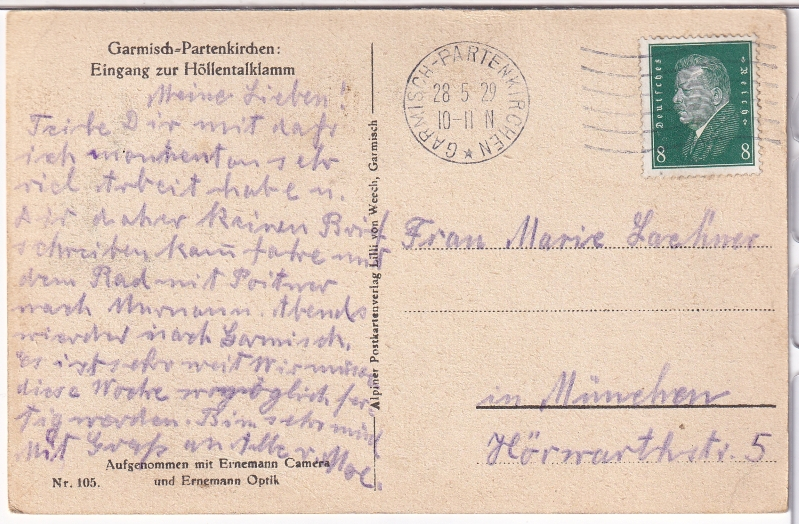 Garmisch-Partenkirchen:
Eingang zur Höllentalklamm
Meine Lieben!
Dir mit dass
ich momentan sehr
viel Arbeit habe u.
Dir daher keinen Brief
schreiben kann fahre mit
dem Rad mit
nach Murnau. Abends
wieder nach Garmisch.
Es ist sehr weit Wir müssen
diese Woche womöglich fer
tig werden. Bin sehr müd
Mit Gruß an Alle
Aufgenommen mit Ernemann Camera
und Ernemann Optik
Nr. 105.
Alpiner Postkartenverlag Lilli von Weech, Garmisch
GARMISCH-PARTENKIRCHEN
28 5 29
10-11 N
Deutsches Reich
8 8
Frau Marie Lackner
in München
Hörwarthstr. 5